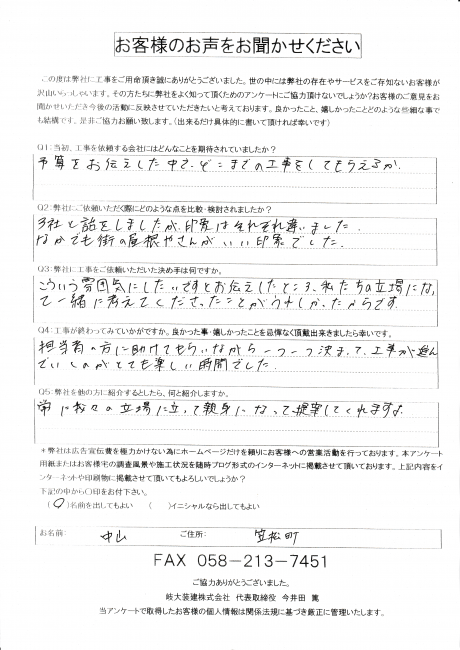 お客様のお声をお聞かせください
この度は弊社に工事をご用命頂き誠にありがとうございました。世の中には弊社の存在やサービスをご存知ないお客様が
沢山いらっしゃいます。その方たちに弊社をよく知って頂くためのアンケートにご協力頂けないでしょうか?お客様のご意見をお
聞かせいただき今後の活動に反映させていただきたいと考えております。良かったこと、嬉しかったことどのような些細な事で
も結構です。是非ご協力お願い致します。(出来るだけ具体的に書いて頂ければ幸いです)
Q1:当初、工事を依頼する会社にはどんなことを期待されていましたか?
予算をお伝えした中で、どこまでの工事をしてもらえるか.
Q2:弊社にご依頼いただく際にどのような点を比較・検討されましたか?
3社と話をしましたが、印象はそれぞれ違いました.
なかでも街の屋根やさんがいい印象でした.
Q3:弊社に工事をご依頼いただいた決め手は何ですか。
こういう雰囲気にしたいですとお伝えしたところ、私たちの立場になっ
て一緒に考えてくださったことがうれしかったからです.
Q4:工事が終わってみていかがですか。良かった事・嬉しかったことを忌憚なく頂戴出来きましたら幸いです。
担当者の方に助けてもらいながら一つ一つ決まって、工事が進ん
でいくのがとても楽しい時間でした.
Q5:弊社を他の方に紹介するとしたら、何と紹介しますか。
常に我々の立場に立って親身になって提案してくれますよ.
*弊社は広告宣伝費を極力かけない為にホームページだけを頼りにお客様への営業活動を行っております。本アンケート
用紙またはお客様宅の調査風景や施工状況を随時ブログ形式のインターネットに掲載させて頂いております。上記内容をイ
ンターネットや印刷物に掲載させて頂いてもよろしいでしょうか?
下記の中から〇印をお付下さい。
(〇)名前を出してもよい ( )イニシャルなら出してもよい
お名前: 中山 ご住所: 笠松町
FAX 058-213-7451
ご協力ありがとうございました。
岐大装建株式会社 代表取締役 今井田 篤
当アンケートで取得したお客様の個人情報は関係法規に基づき厳正に管理いたします。